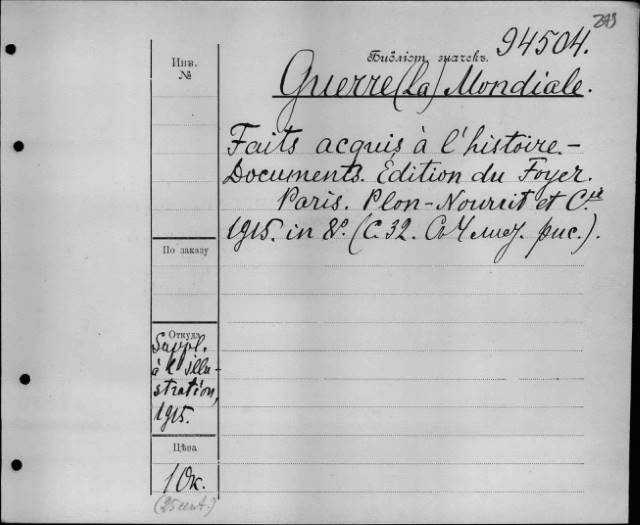 293
94504.
Инв.
№
Библіот. значекъ.
Guerre (La) Mondiale.
Faits acquis à l'histoire.—
Documents. Édition du Foyer.
Paris. Plon-Nourrit et Cie
1915. in 8º. (С. 32. Съ рис.).
По заказу
Откуда
Suppl.
à l'illu-
stration,
1915.
Цѣна
10к.
(25 cent.)